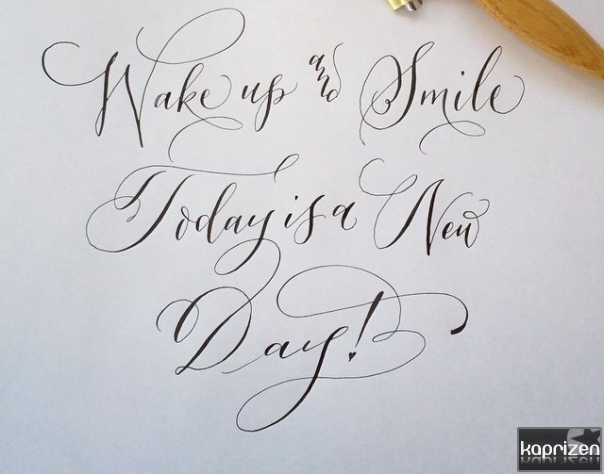 Wake up and Smile
Today is a New
Day!
kaprizen